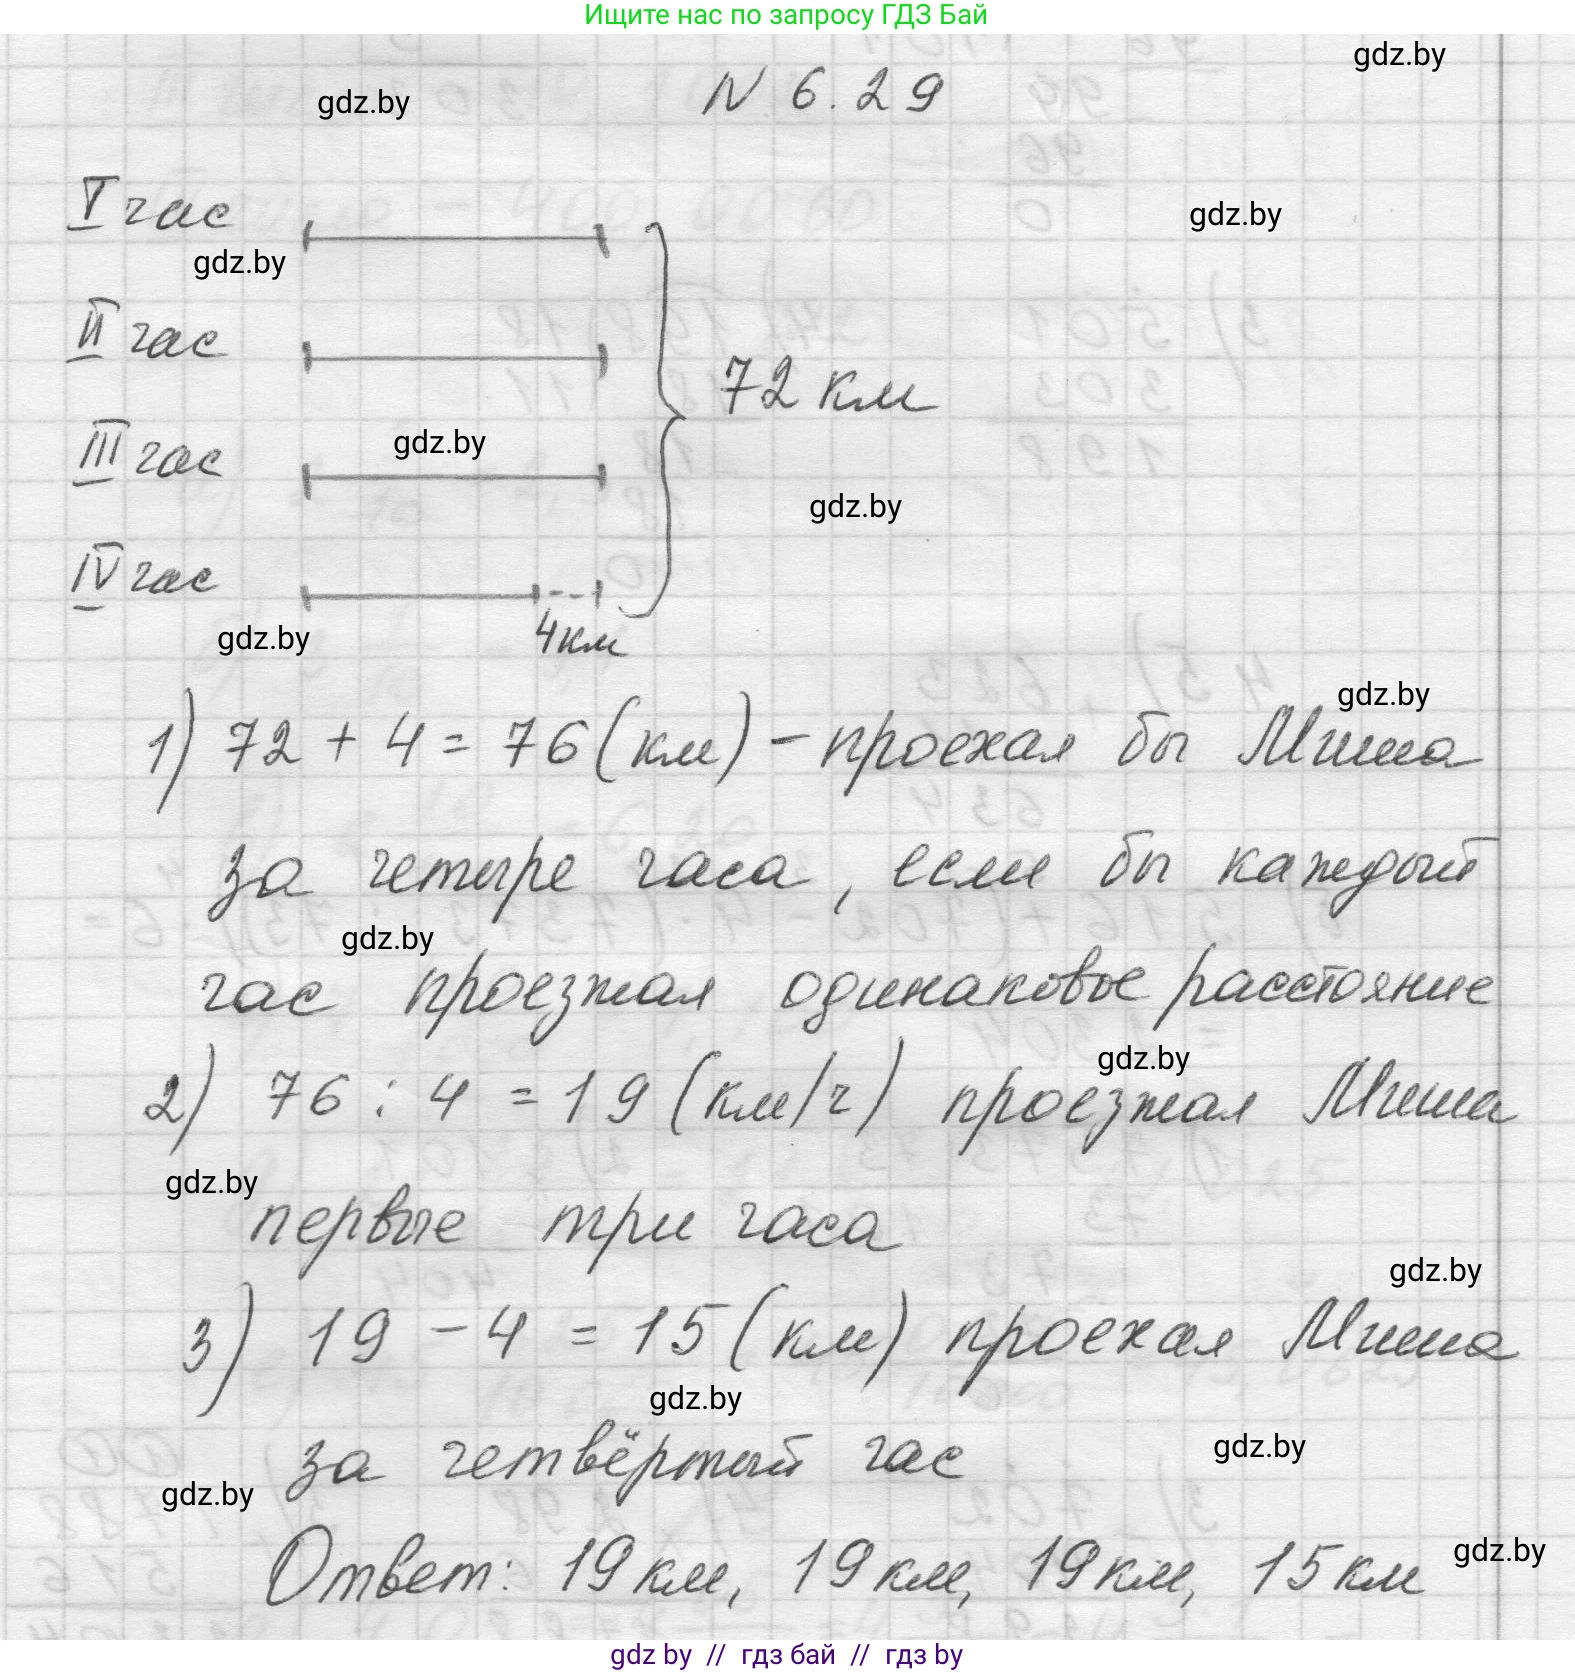 Ищите нас по запросу ГДЗ Бай
gdz.by
gdz.by
N 6.29
I час
gdz.by
gdz.by
II час
72 км
III час
gdz.by
gdz.by
IV час
4км
gdz.by
gdz.by
1) 72 + 4 = 76 (км) - проехал бы Миша
за четыре часа, если бы каждый
gdz.by
час проезжал одинаковое расстояние
gdz.by
2) 76 : 4 = 19 (км/ч) проезжал Миша
gdz.by
первые три часа
gdz.by
3) 19 - 4 = 15 (км) проехал Миша
gdz.by
за четвёртый час
gdz.by
gdz.by
Ответ: 19 км, 19 км, 19 км, 15 км
gdz.by
gdz by // гдз бай // гдз by